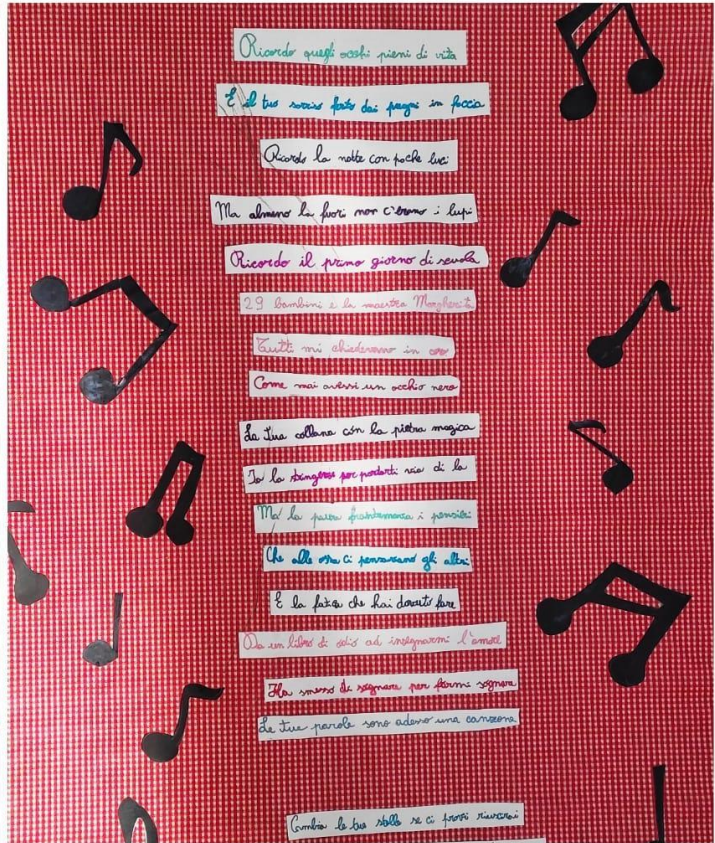 Ricordo quegli occhi pieni di vita
E il tuo sorriso ferito dai pugni in faccia
Ricordo la notte con poche luci
Ma almeno la fuori non c'erano i lupi
Ricordo il primo giorno di scuola
29 bambini e la maestra Margherita
Tutti mi chiedevano in coro
Come mai avessi un occhio nero
La tua collana con la pietra magica
Io la stringevo per portarti via di la
Ma la paura frantumava i pensieri
Che alle ossa ci pensavano gli altri
E la fatica che hai dovuto fare
Da un libro di odio ad insegnarmi l'amore
Hai smesso di sognare per farmi sognare
Le tue parole sono adesso una canzone
Cambia le tue stelle se ci provi riuscirai